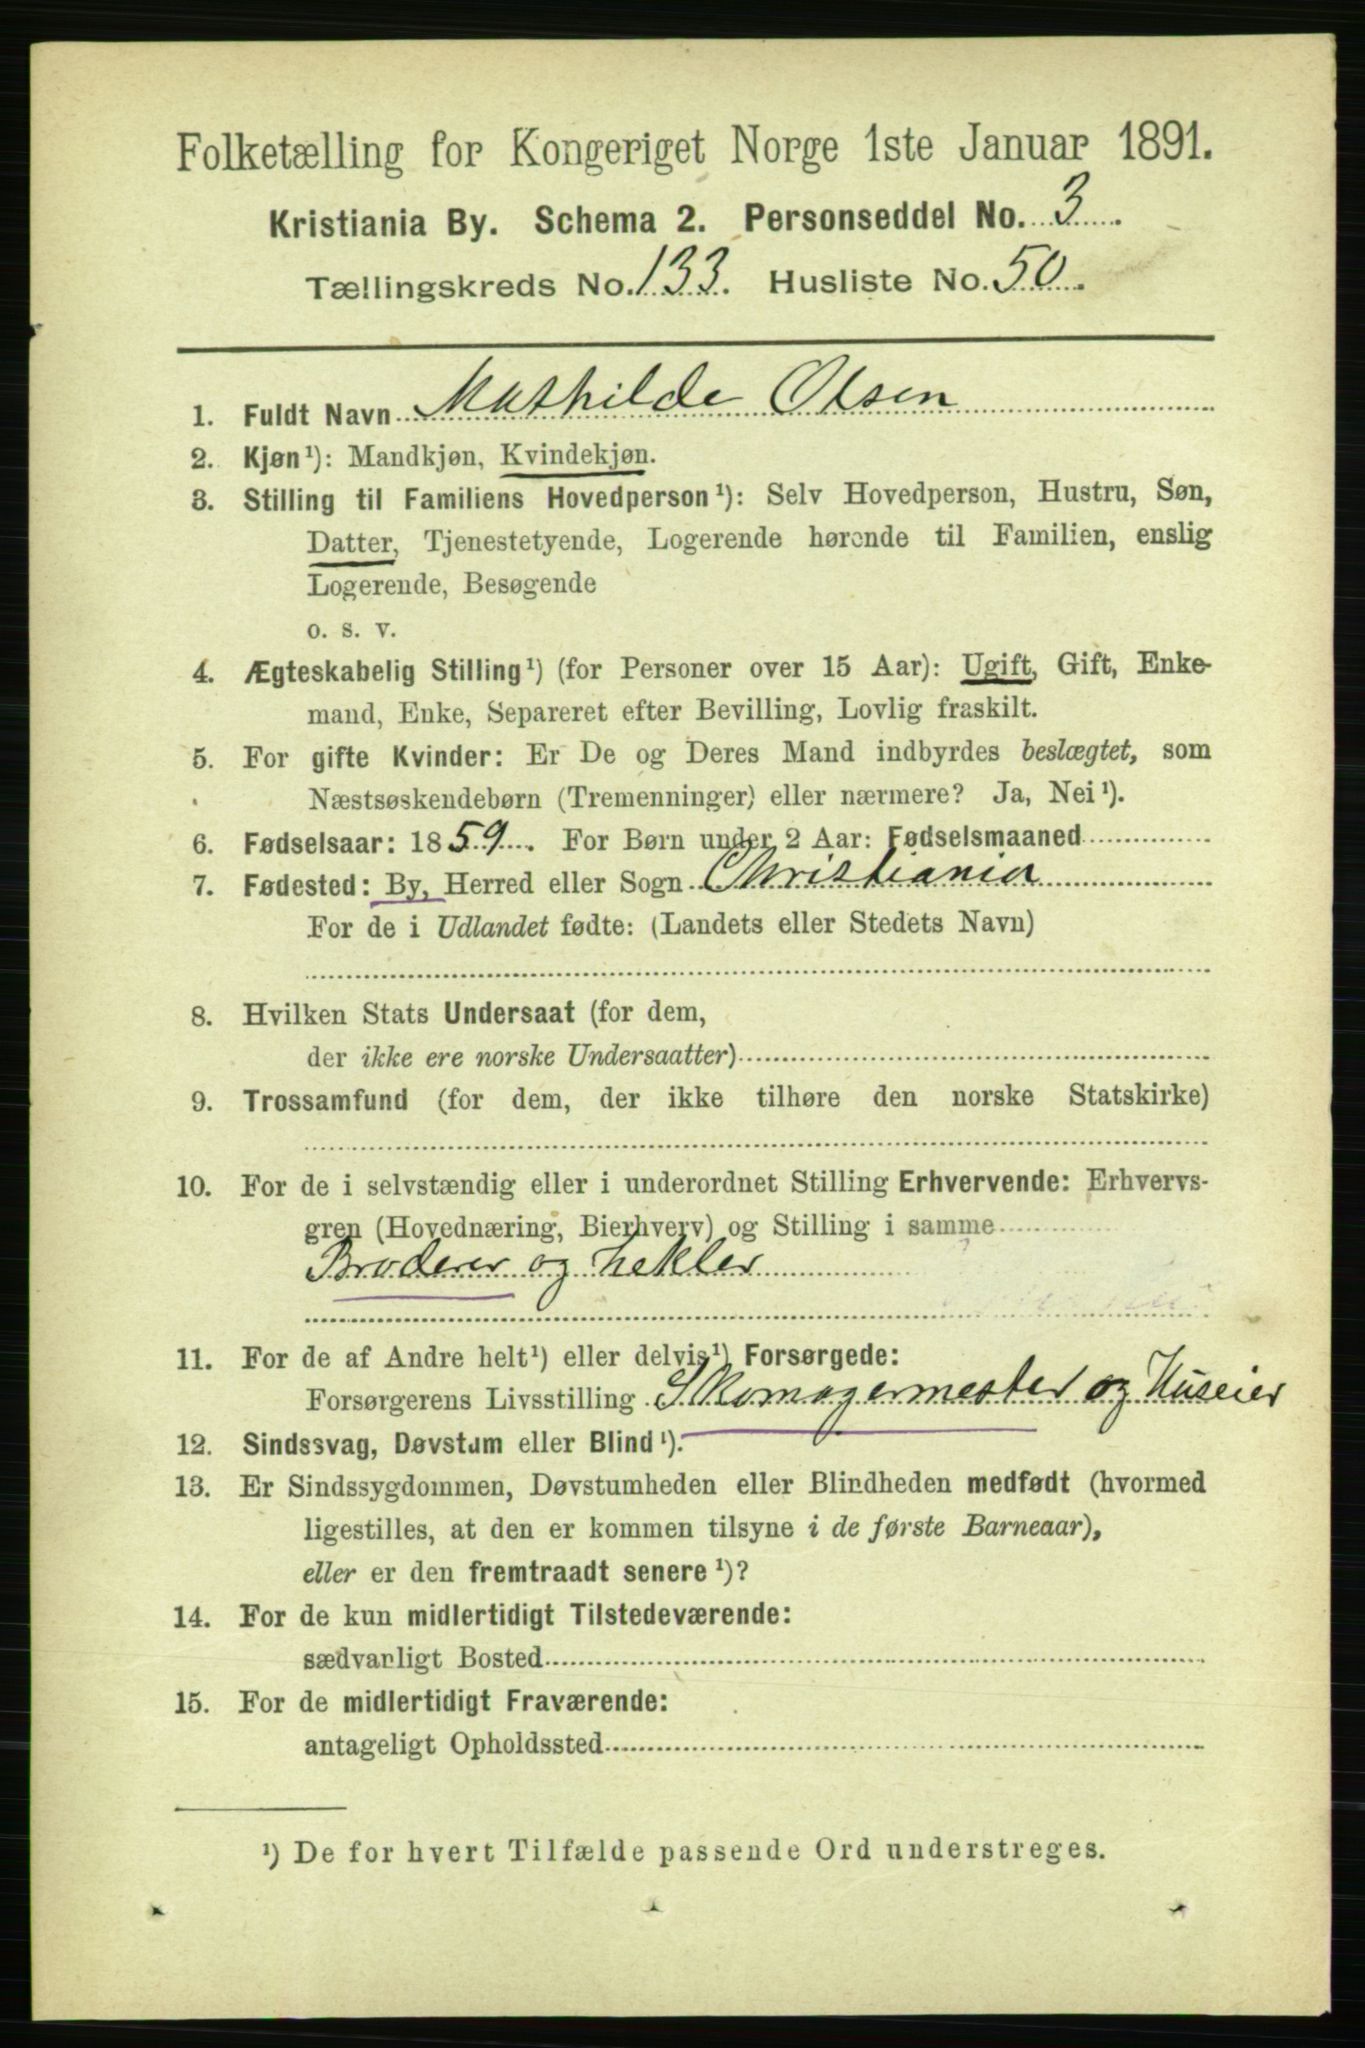 Folketælling for Kongeriget Norge 1ste Januar 1891.
Kristiania By. Schema 2. Personseddel No. 3.
Tællingskreds No. 133. Husliste No. 50.
1. Fuldt Navn Mathilde Olsen
2. Kjøn¹): Mandkjøn, Kvindekjøn.
3. Stilling til Familiens Hovedperson¹): Selv Hovedperson, Hustru, Søn,
Datter, Tjenestetyende, Logerende hørende til Familien, enslig
Logerende, Besøgende
o. s. v.
4. Ægteskabelig Stilling¹) (for Personer over 15 Aar): Ugift, Gift, Enke-
mand, Enke, Separeret efter Bevilling, Lovlig fraskilt.
5. For gifte Kvinder: Er De og Deres Mand indbyrdes beslægtet, som
Næstsøskendebørn (Tremenninger) eller nærmere? Ja, Nei¹).
6. Fødselsaar: 1859. For Børn under 2 Aar: Fødselsmaaned
7. Fødested: By, Herred eller Sogn Christiania
For de i Udlandet fødte: (Landets eller Stedets Navn)
8. Hvilken Stats Undersaat (for dem,
der ikke ere norske Undersaatter)
9. Trossamfund (for dem, der ikke tilhøre den norske Statskirke)
10. For de i selvstændig eller i underordnet Stilling Erhvervende: Erhvervs-
gren (Hovednæring, Bierhverv) og Stilling i samme
Broderer og hekler
11. For de af Andre helt¹) eller delvis¹) Forsørgede:
Forsørgerens Livsstilling Skomagermester og Huseier
12. Sindssvag, Døvstum eller Blind¹).
13. Er Sindssygdommen, Døvstumheden eller Blindheden medfødt (hvormed
ligestilles, at den er kommen tilsyne i de første Barneaar),
eller er den fremtraadt senere¹)?
14. For de kun midlertidigt Tilstedeværende:
sædvanligt Bosted
15. For de midlertidigt Fraværende:
antageligt Opholdssted
¹) De for hvert Tilfælde passende Ord understreges.